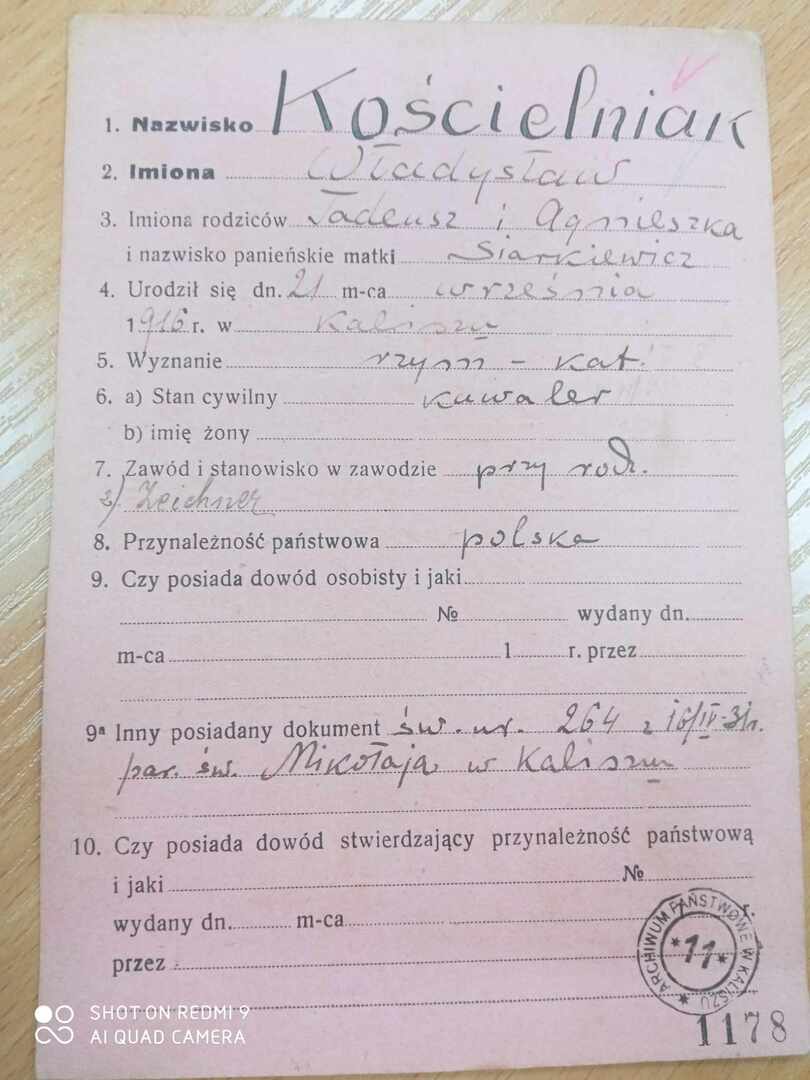 1. Nazwisko Kościelniak
2. Imiona Władysław
3. Imiona rodziców Tadeusz i Agnieszka
i nazwisko panieńskie matki Siarkiewicz
4. Urodził się dn. 21 m-ca września
1916 r. w Kaliszu
5. Wyznanie rzym - kat.
6. a) Stan cywilny kawaler
b) imię żony
7. Zawód i stanowisko w zawodzie przy rodz.
2) Zeichner
8. Przynależność państwowa polska
9. Czy posiada dowód osobisty i jaki
№ wydany dn.
m-ca 1 r. przez
9ª Inny posiadany dokument św. ur. 264 z 16/IV-31r.
par. św. Mikołaja w Kaliszu
10. Czy posiada dowód stwierdzający przynależność państwową
i jaki №
wydany dn. m-ca r.
przez
ARCHIWUM PAŃSTWOWE W KALISZU
*11*
1178
SHOT ON REDMI 9
AI QUAD CAMERA